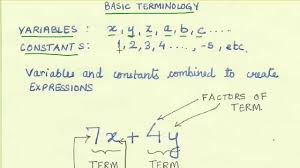 BASIC TERMINOLOGY
VARIABLES : x, y, z, a, b, c....
CONSTANTS : 1, 2, 3, 4...., -5, etc.
Variables and constants combined to create
EXPRESSIONS
FACTORS OF
TERM
7x + 4y
TERM TERM